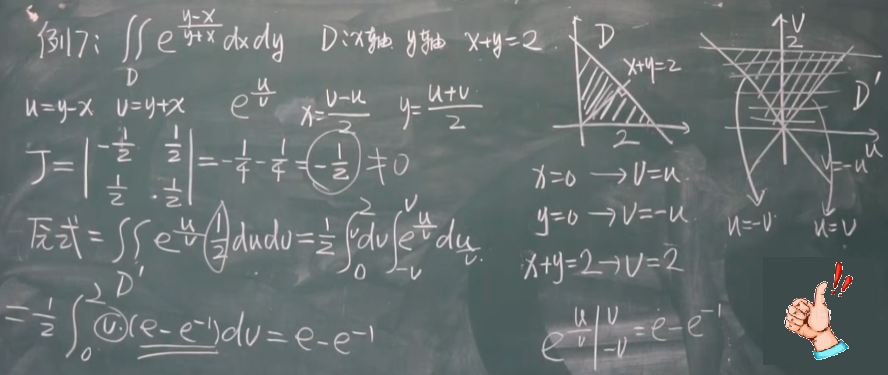 例17: ∬_D e^{\frac{y-x}{y+x}} dxdy D:x轴 y轴 x+y=2
u=y-x v=y+x e^{\frac{u}{v}} x=\frac{v-u}{2} y=\frac{u+v}{2}
J=\begin{vmatrix} -\frac{1}{2} & \frac{1}{2} \\ \frac{1}{2} & \frac{1}{2} \end{vmatrix}=-\frac{1}{4}-\frac{1}{4}=-\frac{1}{2}≠0
原式=∬_{D'} e^{\frac{u}{v}} \frac{1}{2} dudv=\frac{1}{2}∫_0^2 v dv∫_{-v}^{v} e^{\frac{u}{v}} d\frac{u}{v}
=\frac{1}{2}∫_0^2 v·(e-e^{-1})dv=e-e^{-1}
D
x+y=2
2
x=0 → v=u
y=0 → v=-u
x+y=2→v=2
e^{\frac{u}{v}}|_{-v}^{v}=e-e^{-1}
v
2
D'
u
v=-u
u=-v u=v
!!